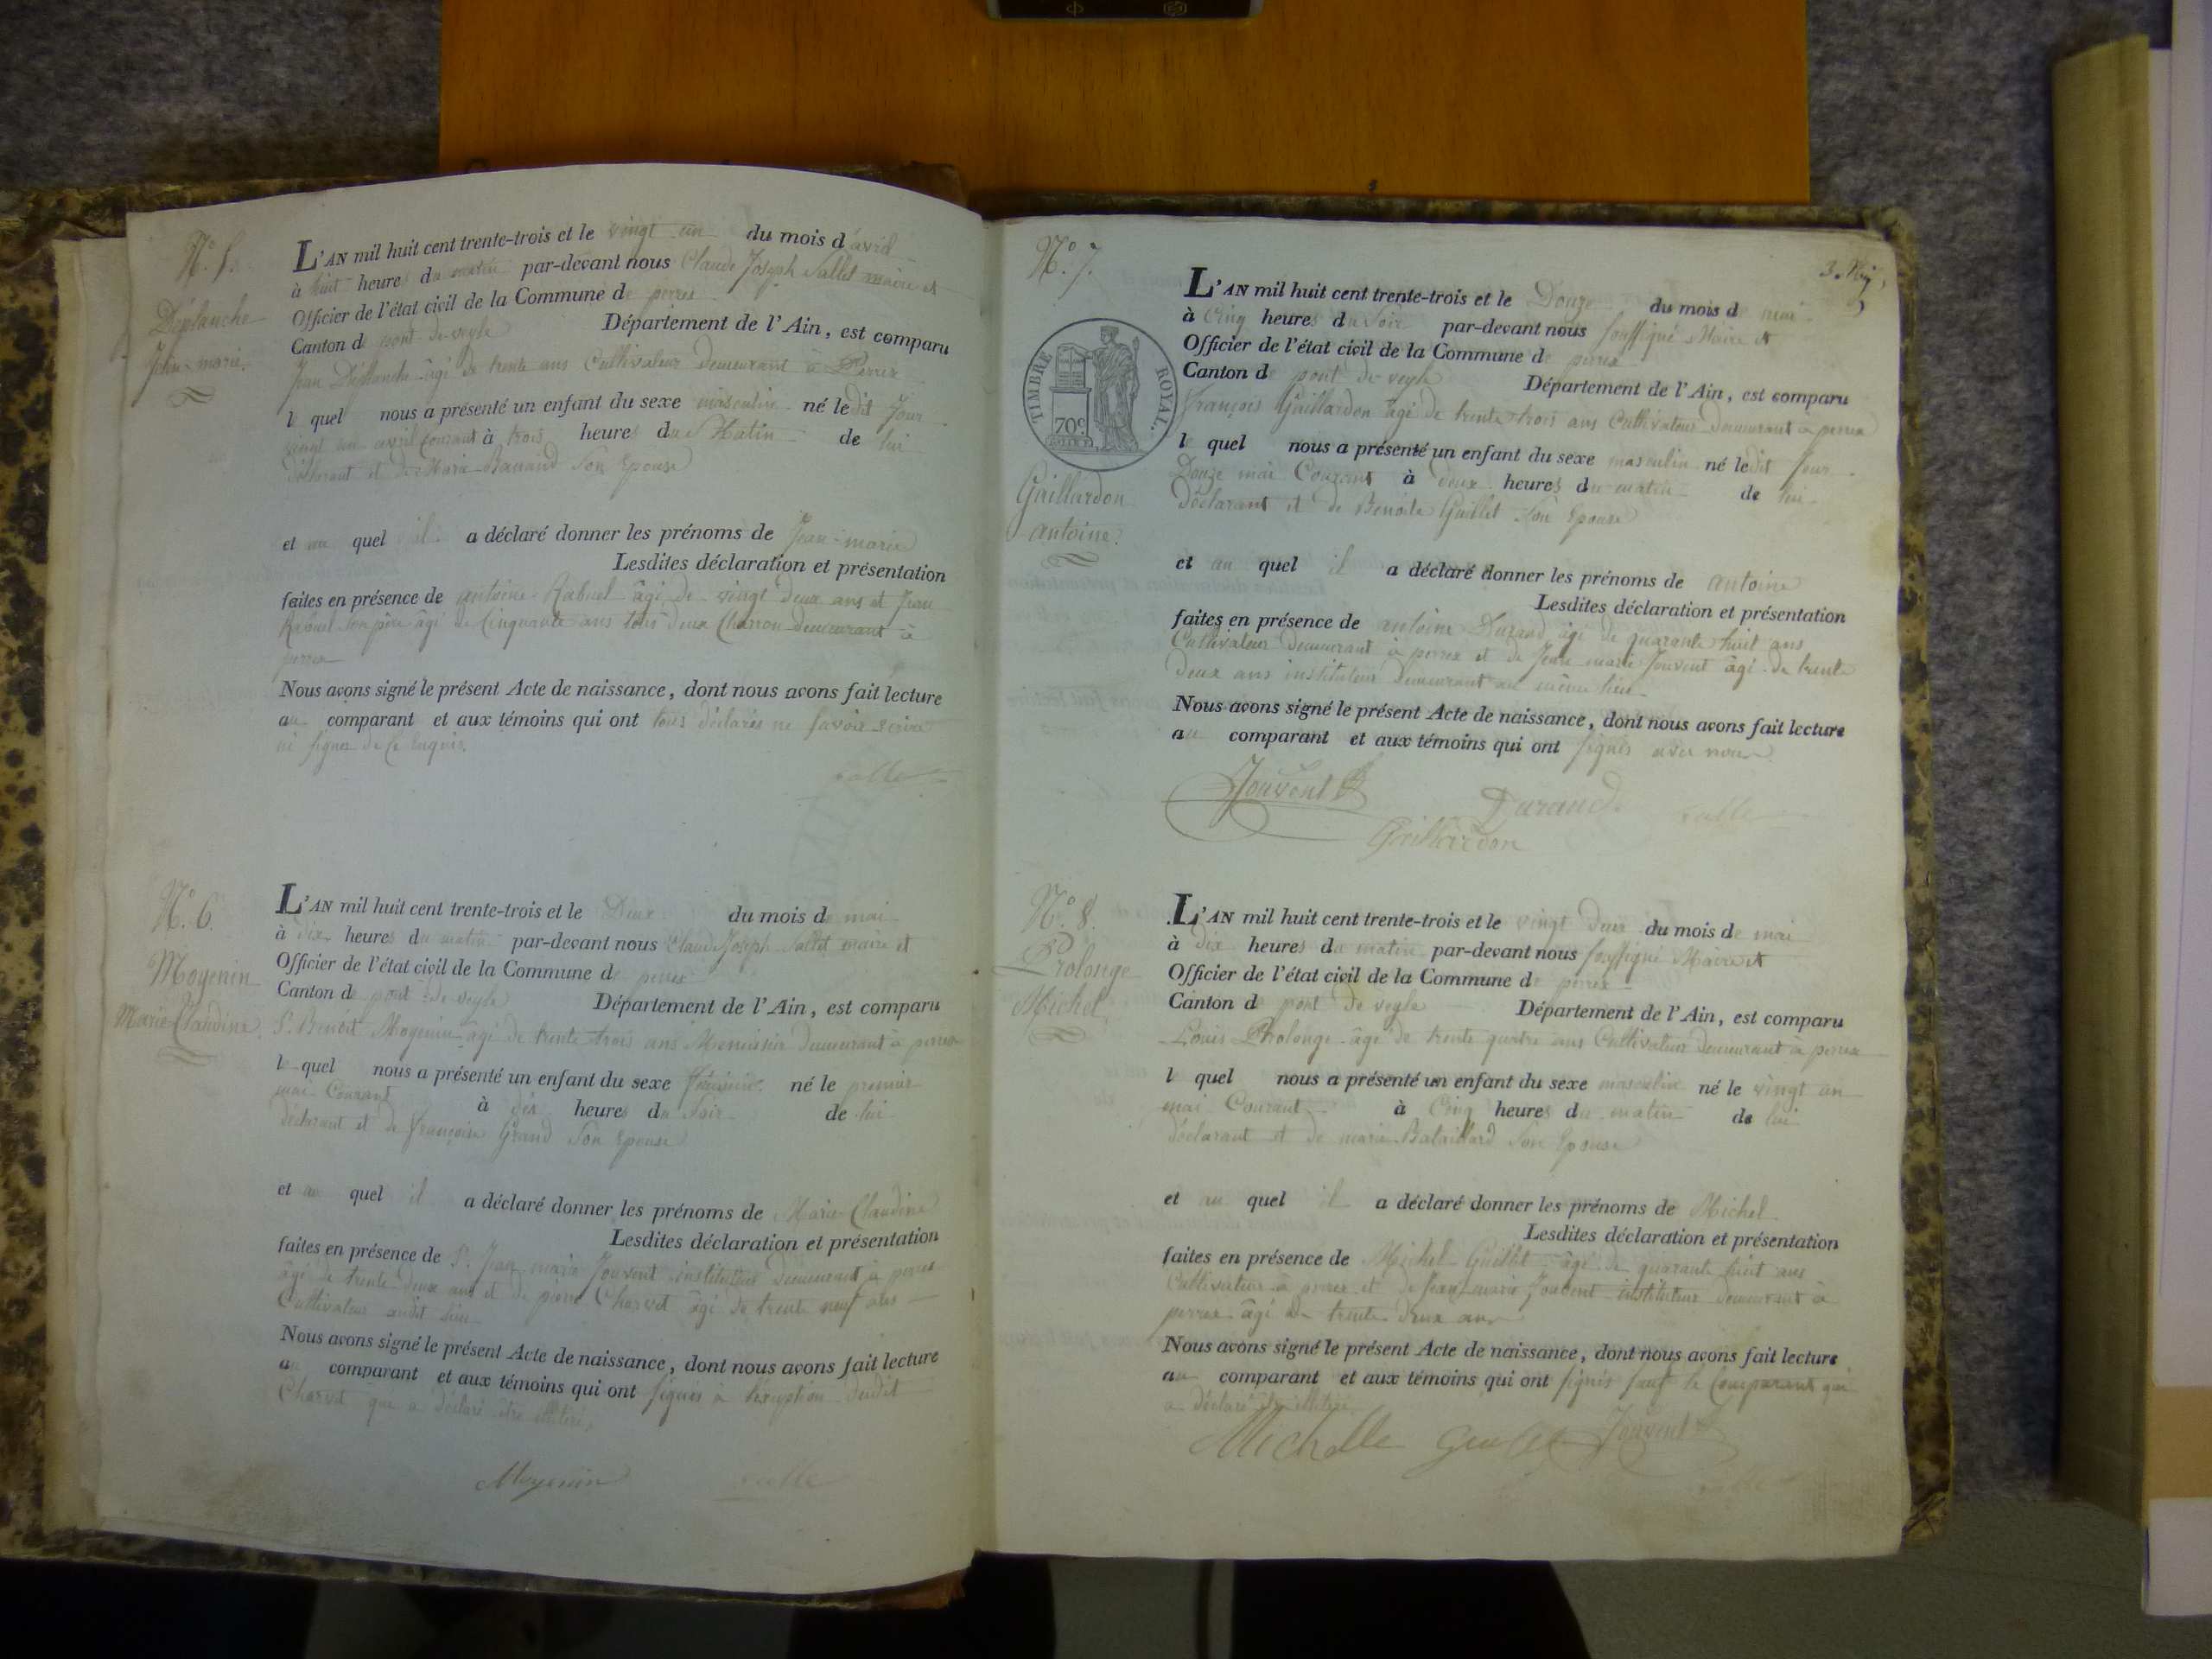 N.º 5.
Déplanche
Jean-marie.
L'AN mil huit cent trente-trois et le vingt un du mois d'avril
à huit heures du matin par-devant nous Claude Joseph Sallet maire et
Officier de l'état civil de la Commune de perrex
Canton de pont-de-veyle Département de l'Ain, est comparu
Jean Déplanche âgé de trente ans Cultivateur demeurant à Perrex
l quel nous a présenté un enfant du sexe masculin né ledit Jour
vingt un avril Courant à trois heures du Matin de lui
déclarant et de Marie Son Epouse
et au quel il a déclaré donner les prénoms de Jean-marie
Lesdites déclaration et présentation
faites en présence de antoine Rabuel âgé de vingt deux ans et Jean
Rabuel Son père âgé de Cinquante ans tous deux Charron demeurant à
perrex
Nous avons signé le présent Acte de naissance, dont nous avons fait lecture
au comparant et aux témoins qui ont tous déclarés ne Savoir écrire
ni signer de Ce Enquis.
Salle
N.º 6.
Moyenin
Marie-Claudine
L'AN mil huit cent trente-trois et le Deux du mois de mai
à dix heures du matin par-devant nous Claude Joseph Sallet maire et
Officier de l'état civil de la Commune de perrex
Canton de pont-de-veyle Département de l'Ain, est comparu
S. Benoit Moyenin âgé de trente trois ans Menuisier demeurant à perrex
l quel nous a présenté un enfant du sexe féminin né le premier
mai Courant à dix heures du Soir de lui
déclarant et de françoise Grand Son Epouse
et au quel il a déclaré donner les prénoms de Marie-Claudine
Lesdites déclaration et présentation
faites en présence de S. Jean marie Jouvent instituteur demeurant à perrex
âgé de trente deux ans et de pierre Charvet âgé de trente neuf ans
Cultivateur audit lieu
Nous avons signé le présent Acte de naissance, dont nous avons fait lecture
au comparant et aux témoins qui ont signés à l'exception dudit
Charvet qui a déclaré être illitéré.
Moyenin Salle
3.
N.º 7.
TIMBRE ROYAL.
70c
Gaillardon
antoine.
L'AN mil huit cent trente-trois et le Douze du mois de mai
à Cinq heures du Soir par-devant nous soussigné Maire et
Officier de l'état civil de la Commune de perrex
Canton de pont de veyle Département de l'Ain, est comparu
François Gaillardon âgé de trente trois ans Cultivateur demeurant à perrex
l quel nous a présenté un enfant du sexe masculin né ledit Jour
Douze mai Courant à deux heures du matin de lui
déclarant et de Benoite Guillet Son Epouse
et au quel il a déclaré donner les prénoms de antoine
Lesdites déclaration et présentation
faites en présence de antoine Durand âgé de quarante huit ans
Cultivateur demeurant à perrex et de Jean marie Jouvent âgé de trente
deux ans instituteur demeurant au même lieu
Nous avons signé le présent Acte de naissance, dont nous avons fait lecture
au comparant et aux témoins qui ont signés avec nous
Jouvent Durand Salle
Gaillardon
N.º 8.
Prolonge
Michel
L'AN mil huit cent trente-trois et le vingt deux du mois de mai
à dix heures du matin par-devant nous soussigné Maire et
Officier de l'état civil de la Commune de perrex
Canton de pont de veyle Département de l'Ain, est comparu
Louis Prolonge âgé de trente quatre ans Cultivateur demeurant à perrex
l quel nous a présenté un enfant du sexe masculin né le vingt un
mai Courant à Cinq heures du matin de lui
déclarant et de marie Bataillard Son Epouse
et au quel il a déclaré donner les prénoms de Michel
Lesdites déclaration et présentation
faites en présence de Michel Guillet âgé de quarante huit ans
Cultivateur à perrex et de Jean-marie Jouvent instituteur demeurant à
perrex âgé de trente deux ans
Nous avons signé le présent Acte de naissance, dont nous avons fait lecture
au comparant et aux témoins qui ont signés sauf le Comparant qui
a déclaré être illitéré
Michelle Jouvent
Salle